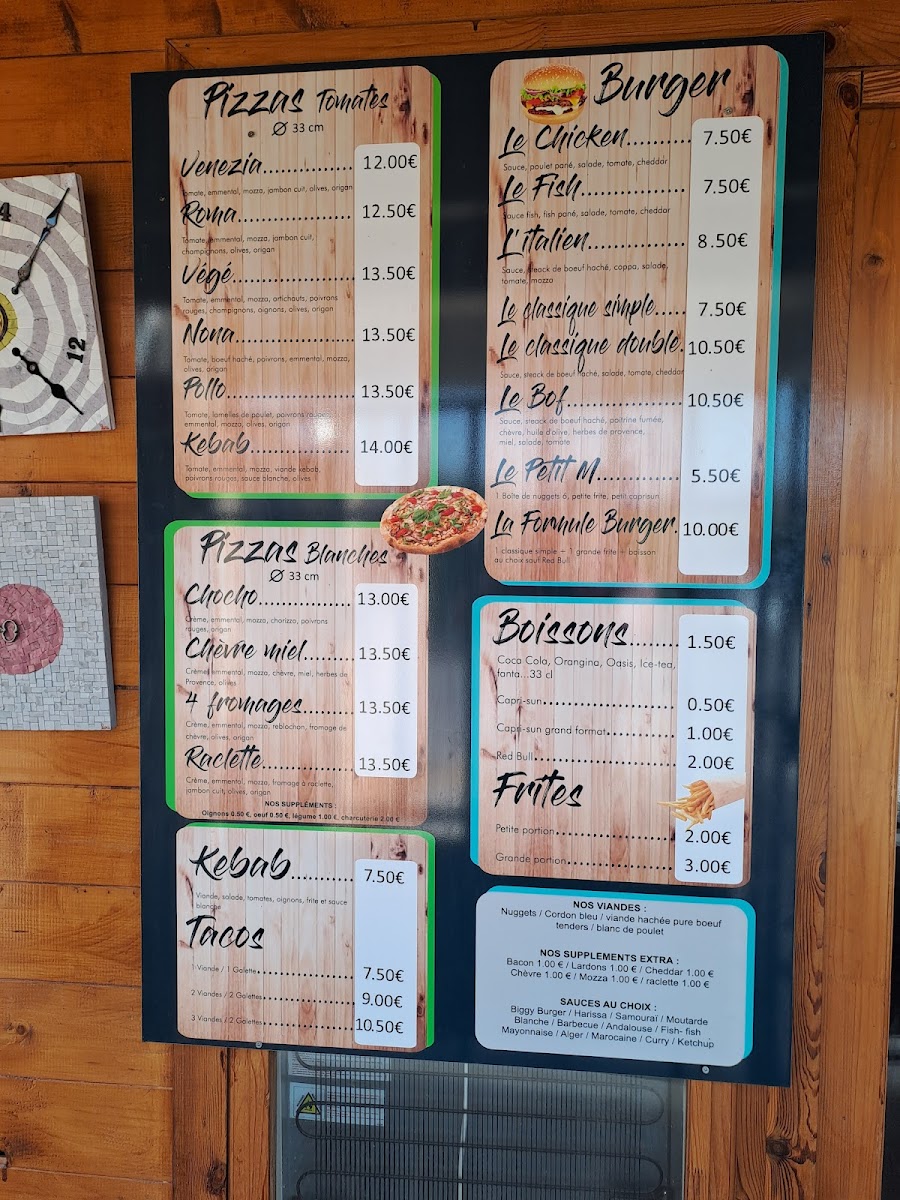 Pizzas Tomates
Ø 33 cm
Venezia.................. 12.00€
Tomate, emmental, mozza, jambon cuit, olives, origan
Roma.................... 12.50€
Tomate, emmental, mozza, jambon cuit,
champignons, olives, origan
Végé..................... 13.50€
Tomate, emmental, mozza, artichauts, poivrons
rouges, champignons, oignons, olives, origan
Nona..................... 13.50€
Tomate, boeuf haché, poivrons, emmental, mozza,
olives, origan
Pollo..................... 13.50€
Tomate, lamelles de poulet, poivrons rouges,
emmental, mozza, olives, origan
Kebab................... 14.00€
Tomate, emmental, mozza, viande kebab,
poivrons rouges, sauce blanche, olives
Pizzas Blanches
Ø 33 cm
Chocho................. 13.00€
Crème, emmental, mozza, chorizo, poivrons
rouges, origan
Chèvre miel........ 13.50€
Crème, emmental, mozza, chèvre, miel, herbes de
Provence, olives
4 fromages......... 13.50€
Crème, emmental, mozza, reblochon, fromage de
chèvre, olives, origan
Raclette............... 13.50€
Crème, emmental, mozza, fromage à raclette,
jambon cuit, olives, origan
NOS SUPPLÉMENTS :
Oignons 0.50 €, oeuf 0.50 €, légume 1.00 €, charcuterie 2.00 €
Kebab........... 7.50€
Viande, salade, tomates, oignons, frite et sauce
blanche
Tacos
1 Viande / 1 Galette.................. 7.50€
2 Viandes / 2 Galettes................ 9.00€
3 Viandes / 2 Galettes................ 10.50€
Burger
Le Chicken........... 7.50€
Sauce, poulet pané, salade, tomate, cheddar
Le Fish................. 7.50€
Sauce fish, fish pané, salade, tomate, cheddar
L'italien................ 8.50€
Sauce, steack de boeuf haché, coppa, salade,
tomate, mozza
Le classique simple..... 7.50€
Le classique double. 10.50€
Sauce, steack de boeuf haché, salade, tomate, cheddar
Le Bof.................. 10.50€
Sauce, steack de boeuf haché, poitrine fumée,
chèvre, huile d'olive, herbes de provence,
miel, salade, tomate
Le Petit M.............. 5.50€
1 Boîte de nuggets 6, petite frite, petit caprisun
La Formule Burger. 10.00€
1 classique simple + 1 grande frite + boisson
au choix sauf Red Bull
Boissons....... 1.50€
Coca Cola, Orangina, Oasis, Ice-tea,
fanta...33 cl
Capri-sun...................... 0.50€
Capri-sun grand format............ 1.00€
Red Bull....................... 2.00€
Frites
Petite portion.................. 2.00€
Grande portion................ 3.00€
NOS VIANDES :
Nuggets / Cordon bleu / viande hachée pure boeuf
tenders / blanc de poulet
NOS SUPPLEMENTS EXTRA :
Bacon 1.00 € / Lardons 1.00 € / Cheddar 1.00 €
Chèvre 1.00 € / Mozza 1.00 € / raclette 1.00 €
SAUCES AU CHOIX :
Biggy Burger / Harissa / Samouraï / Moutarde
Blanche / Barbecue / Andalouse / Fish- fish
Mayonnaise / Alger / Marocaine / Curry / Ketchup
4
12